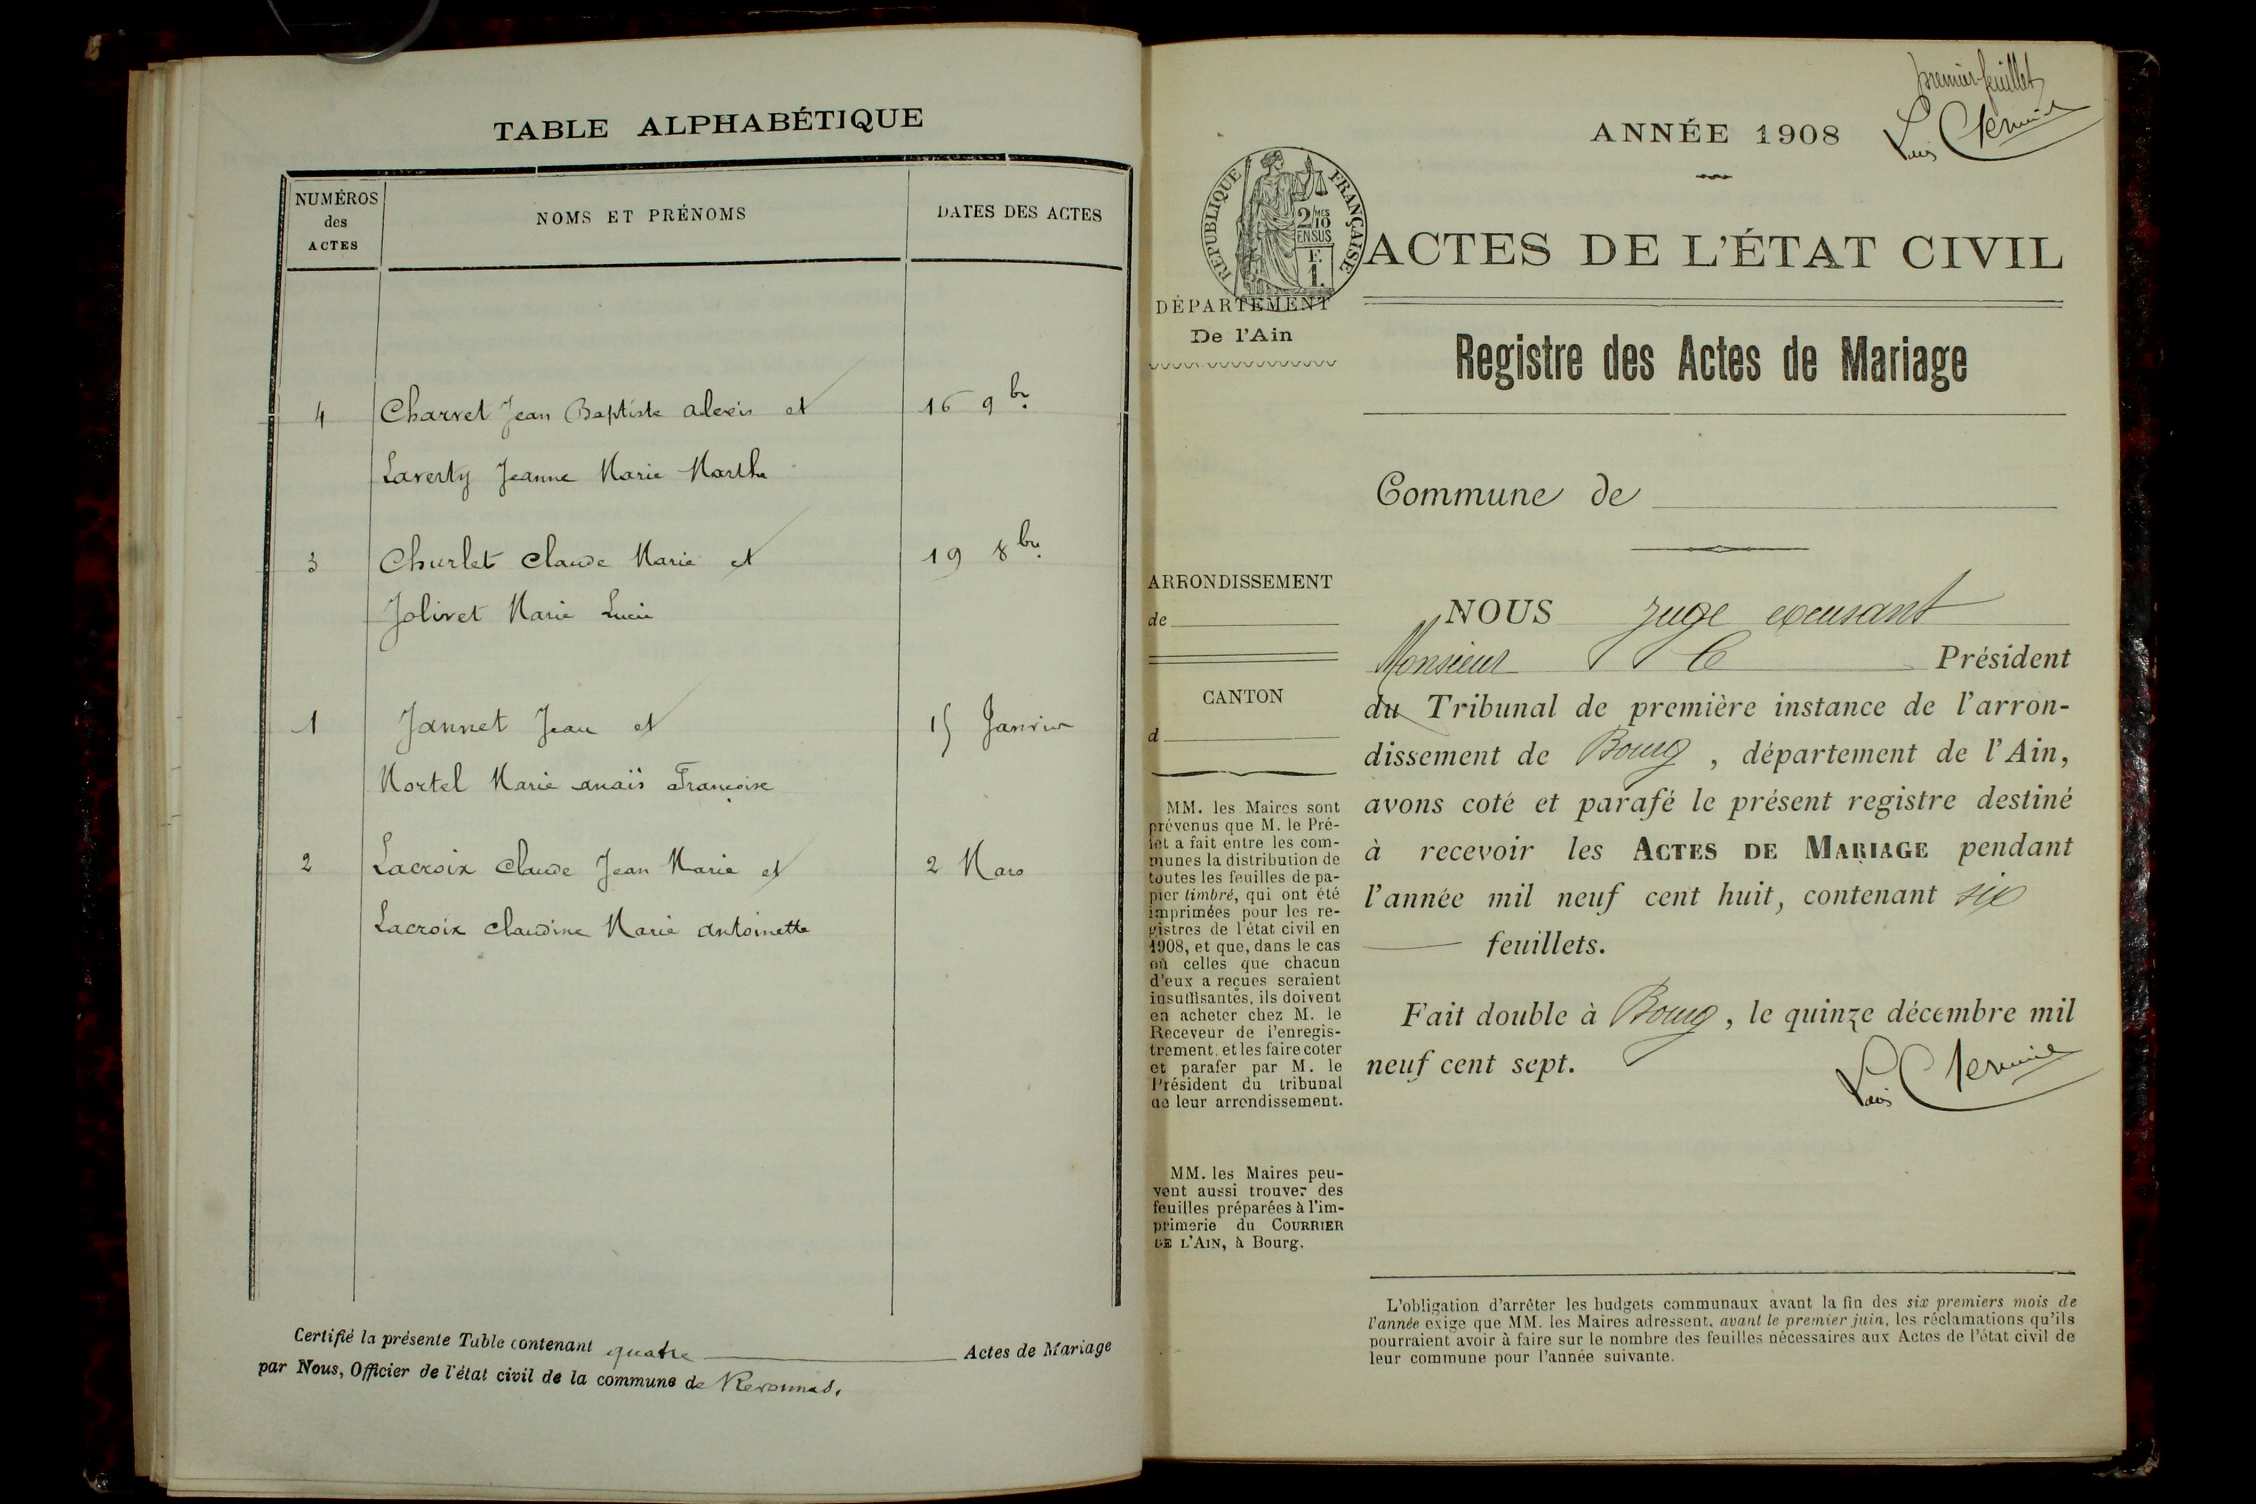 TABLE ALPHABÉTIQUE
NUMÉROS
des
ACTES
NOMS ET PRÉNOMS
DATES DES ACTES
4 Charvet Jean Baptiste alexis et 16 9bre
Laverty Jeanne Marie Marthe
3 Churlet Claude Marie et 19 8bre
Jolivet Marie Lucie
1 Jannet Jean et 15 Janvier
Mortel Marie anaïs Françoise
2 Lacroix Claude Jean Marie et 2 Mars
Lacroix Claudine Marie antoinette
Certifié la présente Table contenant quatre Actes de Mariage
par Nous, Officier de l'état civil de la commune de Revonnas.
premier feuillet
Louis
ANNÉE 1908
RÉPUBLIQUE FRANÇAISE
2/10 MES
EN SUS
F.
1.
ACTES DE L'ÉTAT CIVIL
DÉPARTEMENT
De l'Ain
Registre des Actes de Mariage
Commune de
ARRONDISSEMENT
de
CANTON
d
MM. les Maires sont
prévenus que M. le Pré-
fet a fait entre les com-
munes la distribution de
toutes les feuilles de pa-
pier timbré, qui ont été
imprimées pour les re-
gistres de l'état civil en
1908, et que, dans le cas
où celles que chacun
d'eux a reçues seraient
insuffisantes, ils doivent
en acheter chez M. le
Receveur de l'enregis-
trement, et les faire coter
et parafer par M. le
Président du tribunal
de leur arrondissement.
MM. les Maires peu-
vent aussi trouver des
feuilles préparées à l'im-
primerie du COURRIER
DE L'AIN, à Bourg.
NOUS juge excusant
Monsieur le Président
du Tribunal de première instance de l'arron-
dissement de Bourg, département de l'Ain,
avons coté et parafé le présent registre destiné
à recevoir les ACTES DE MARIAGE pendant
l'année mil neuf cent huit, contenant six
feuillets.
Fait double à Bourg, le quinze décembre mil
neuf cent sept.
Louis
L'obligation d'arrêter les budgets communaux avant la fin des six premiers mois de
l'année exige que MM. les Maires adressent, avant le premier juin, les réclamations qu'ils
pourraient avoir à faire sur le nombre des feuilles nécessaires aux Actes de l'état civil de
leur commune pour l'année suivante.